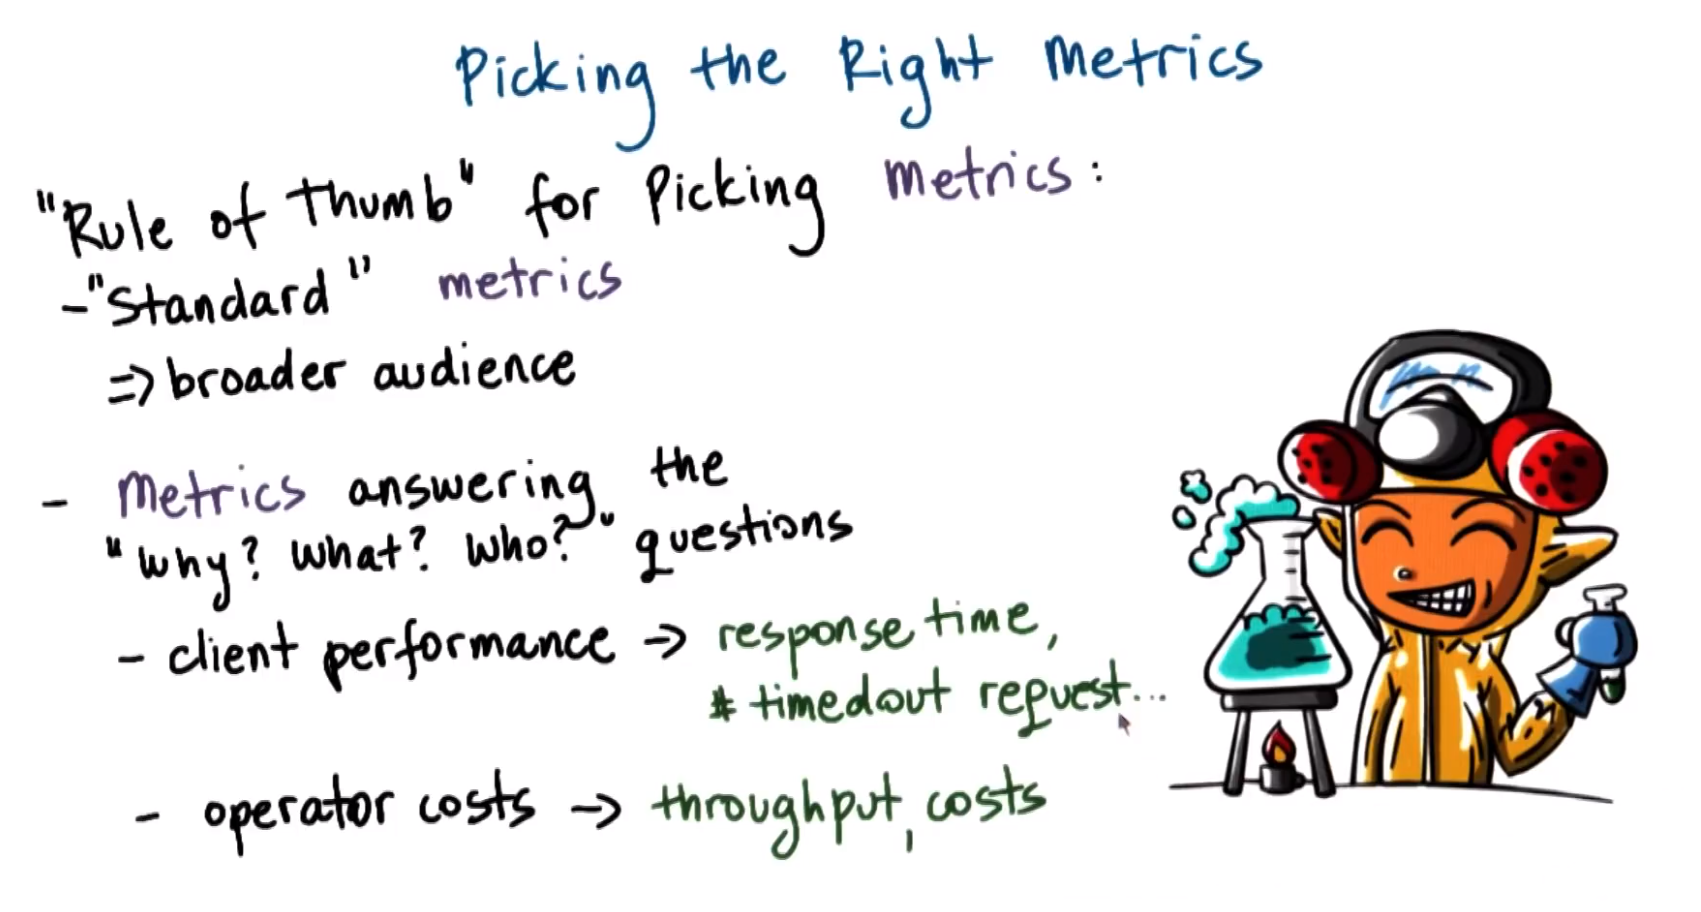 Picking the Right Metrics
"Rule of Thumb" for Picking Metrics:
-"Standard" metrics
=> broader audience
- Metrics answering the
"why? what? who?" questions
- client performance -> response time,
# timedout request...
- operator costs -> throughput, costs